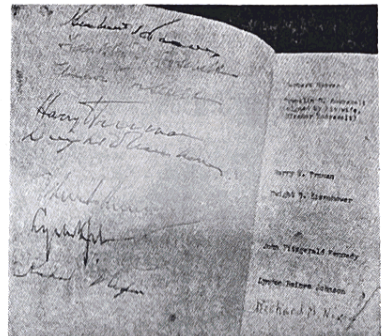 Herbert Hoover
Franklin D. Roosevelt
Eleanor Roosevelt
Harry Truman
Dwight D Eisenhower
Herbert Hoover
Franklin D. Roosevelt
(signed by his wife,
Eleanor Roosevelt)
Harry S. Truman
Dwight D. Eisenhower
John Fitzgerald Kennedy
Lyndon Baines Johnson
Richard M. Nixon